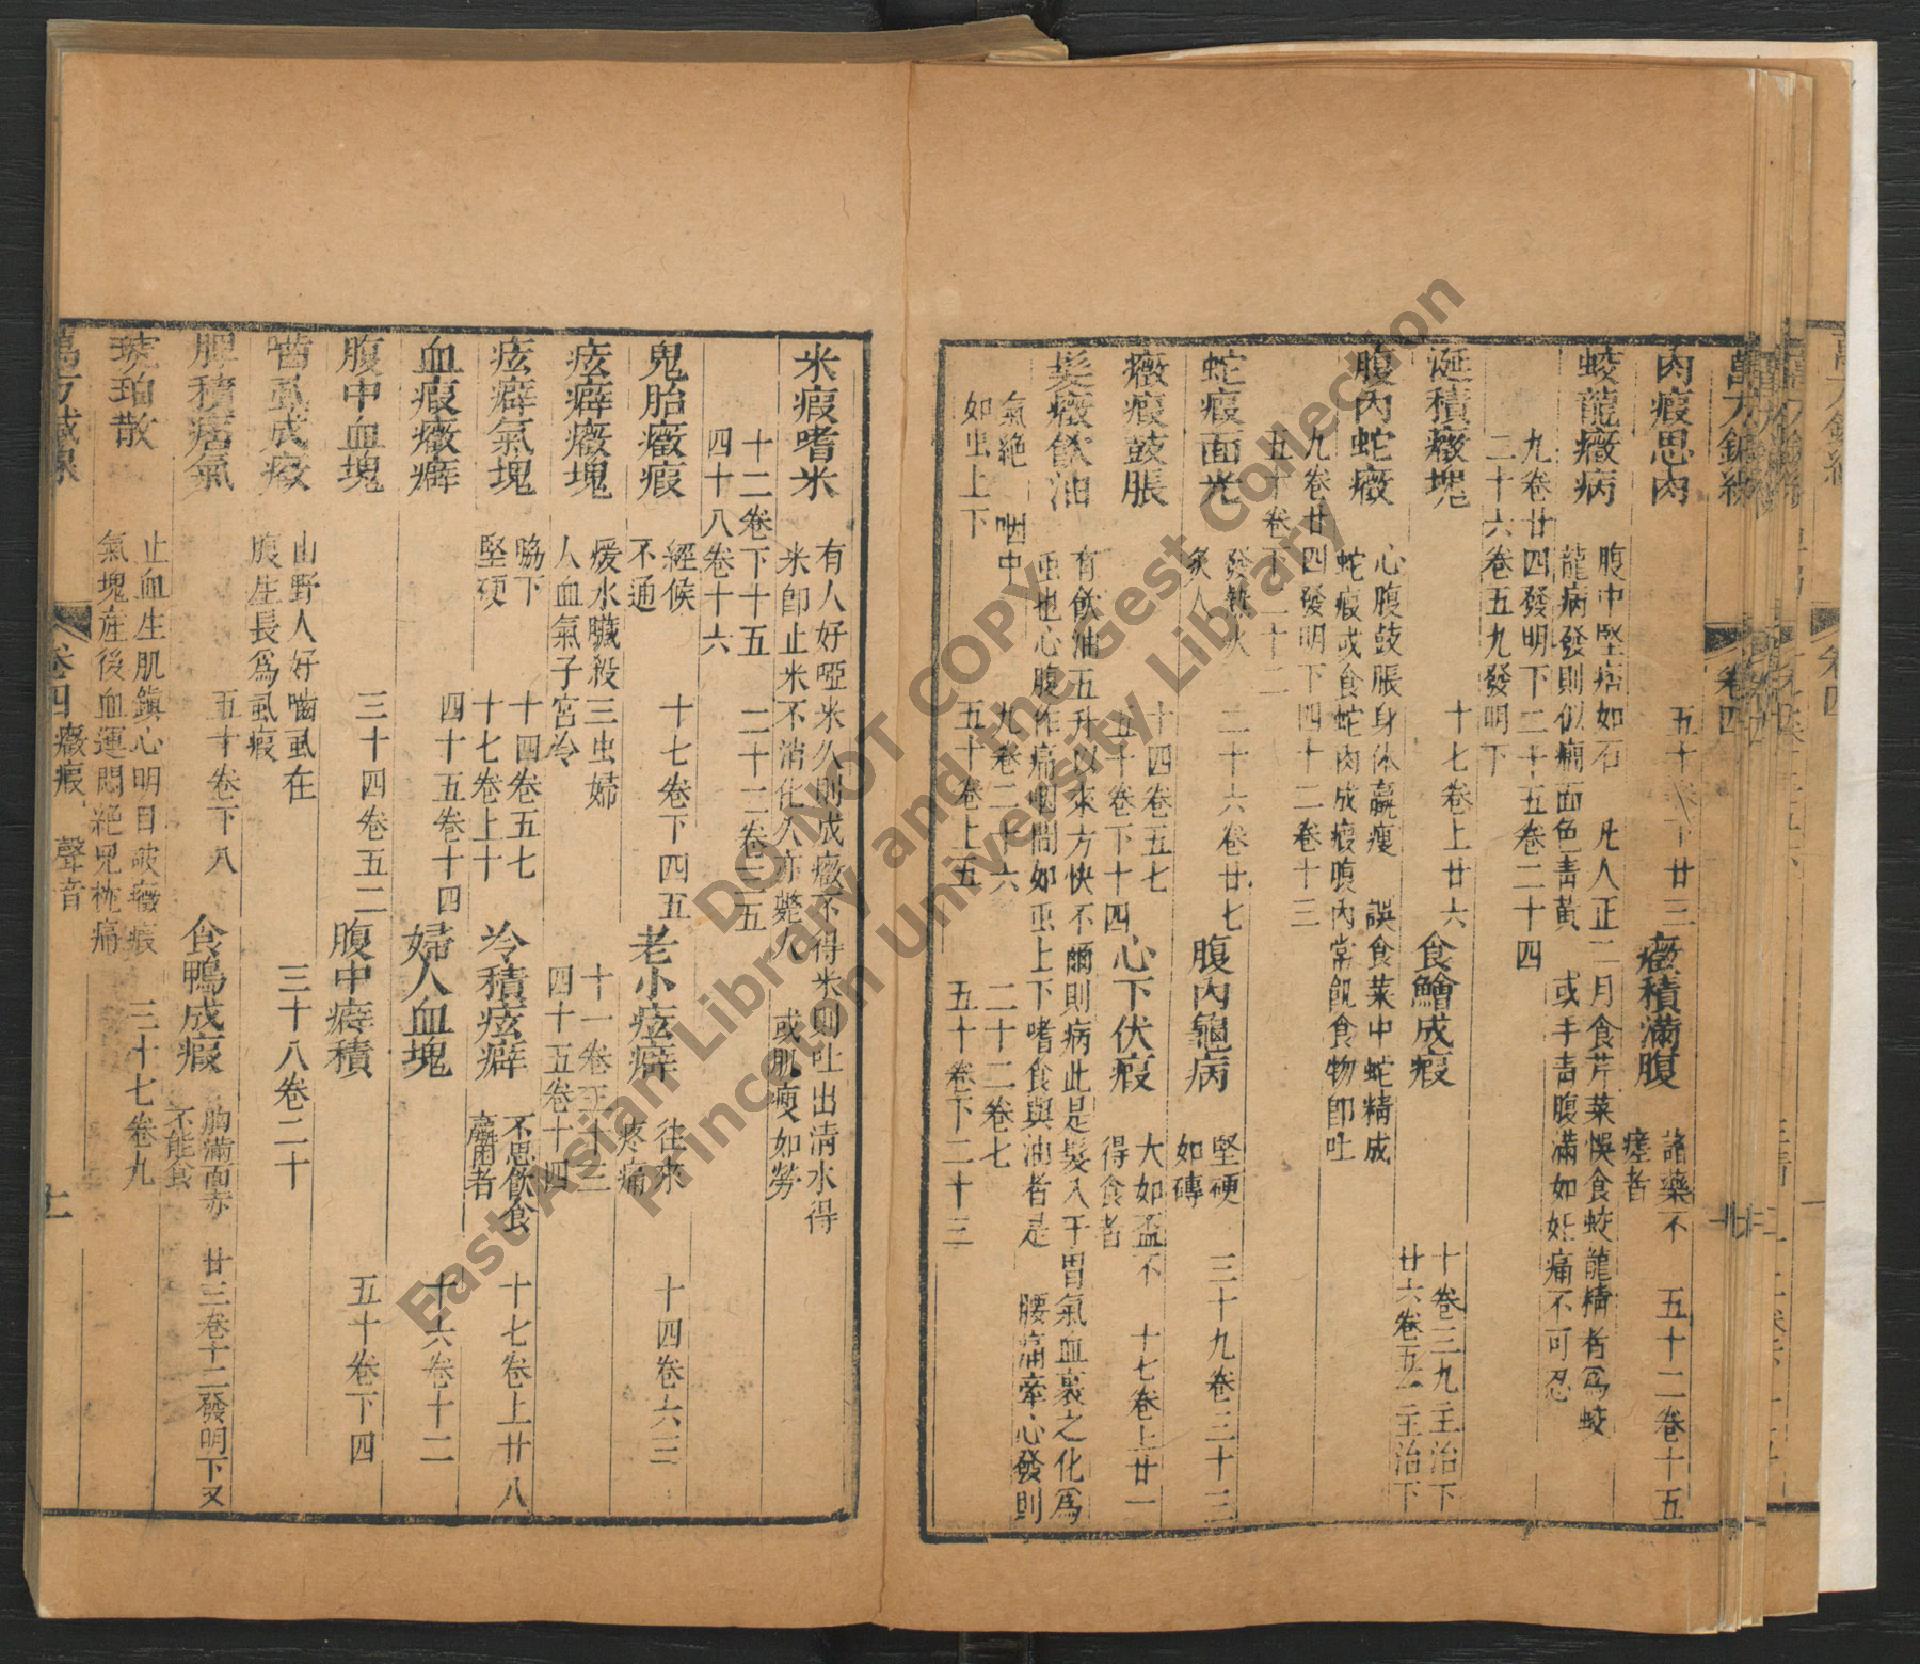 萬方鍼線 卷四
肉瘕思肉 五十卷下廿三 癥積滿腹 諸藥不瘥者 五十二卷十五
蛟龍癥病 腹中堅痞如石 凡人正二月食芹菜悞食蛟龍精者爲蛟
龍病發則似癇面色青黃 或手青腹滿如妊痛不可忍
九卷廿四發明下 二十五卷二十四
二十六卷五九發明下
涎積癥塊 十七卷上廿六 食鱠成瘕 十卷三九主治下
廿六卷五一主治下
腹內蛇癥 心腹鼓脹身体羸瘦 誤食菜中蛇精成
蛇瘕或食蛇肉成瘕腹內常飢食物即吐
九卷廿四發明下 四十二卷十三
五十卷下二十二
蛇瘕面光 發熱火炙人 二十六卷廿七 腹內龜病 堅硬如磚 三十九卷三十三
癥瘕鼓脹 十四卷五七 五十卷下十四 心下伏瘕 大如盃不得食者 十七卷上廿一
髮癥飲油 有飲油五升以來方快不爾則病此是髮入于胃氣血裹之化爲
虫也心腹作痛咽間如虫上下嗜食與油者是 腰痛牽心發則
氣絕 咽中 九卷二十六 二十二卷七
如虫上下 五十卷上五 五十卷下二十三
米瘕嗜米 有人好啞米久則成癥不得米則吐出清水得
米卽止米不消化久亦斃人 或肌瘦如勞
十二卷下十五 二十二卷二五
四十八卷十六
鬼胎癥瘕 經候不通 十七卷下四五 老小痃癖 往來疼痛 十四卷六三
痃癖癥塊 煖水臟殺三虫婦人血氣子宮冷 十一卷三十三
四十五卷十四
痃癖氣塊 脇下堅硬 十四卷五七 十七卷上十 冷積痃癖 不思飲食羸者 十七卷上廿八
血瘕癥癖 四十五卷十四 婦人血塊 十六卷十二
腹中血塊 三十四卷五二 腹中癖積 五十卷下四
嚙虱成癥 山野人好嚙虱在腹生長爲虱瘕 三十八卷二十
脾積痞氣 五十卷下八 食鴨成瘕 胸滿面赤不能食 廿三卷十二發明下又
琥珀散 止血生肌鎮心明目破癥瘕
氣塊産後血運悶絕兒枕痛 三十七卷九
萬方鍼線 卷四 癥瘕 聲音 十一
DO NOT COPY
East Asian Library and the Gest Collection
Princeton University Library